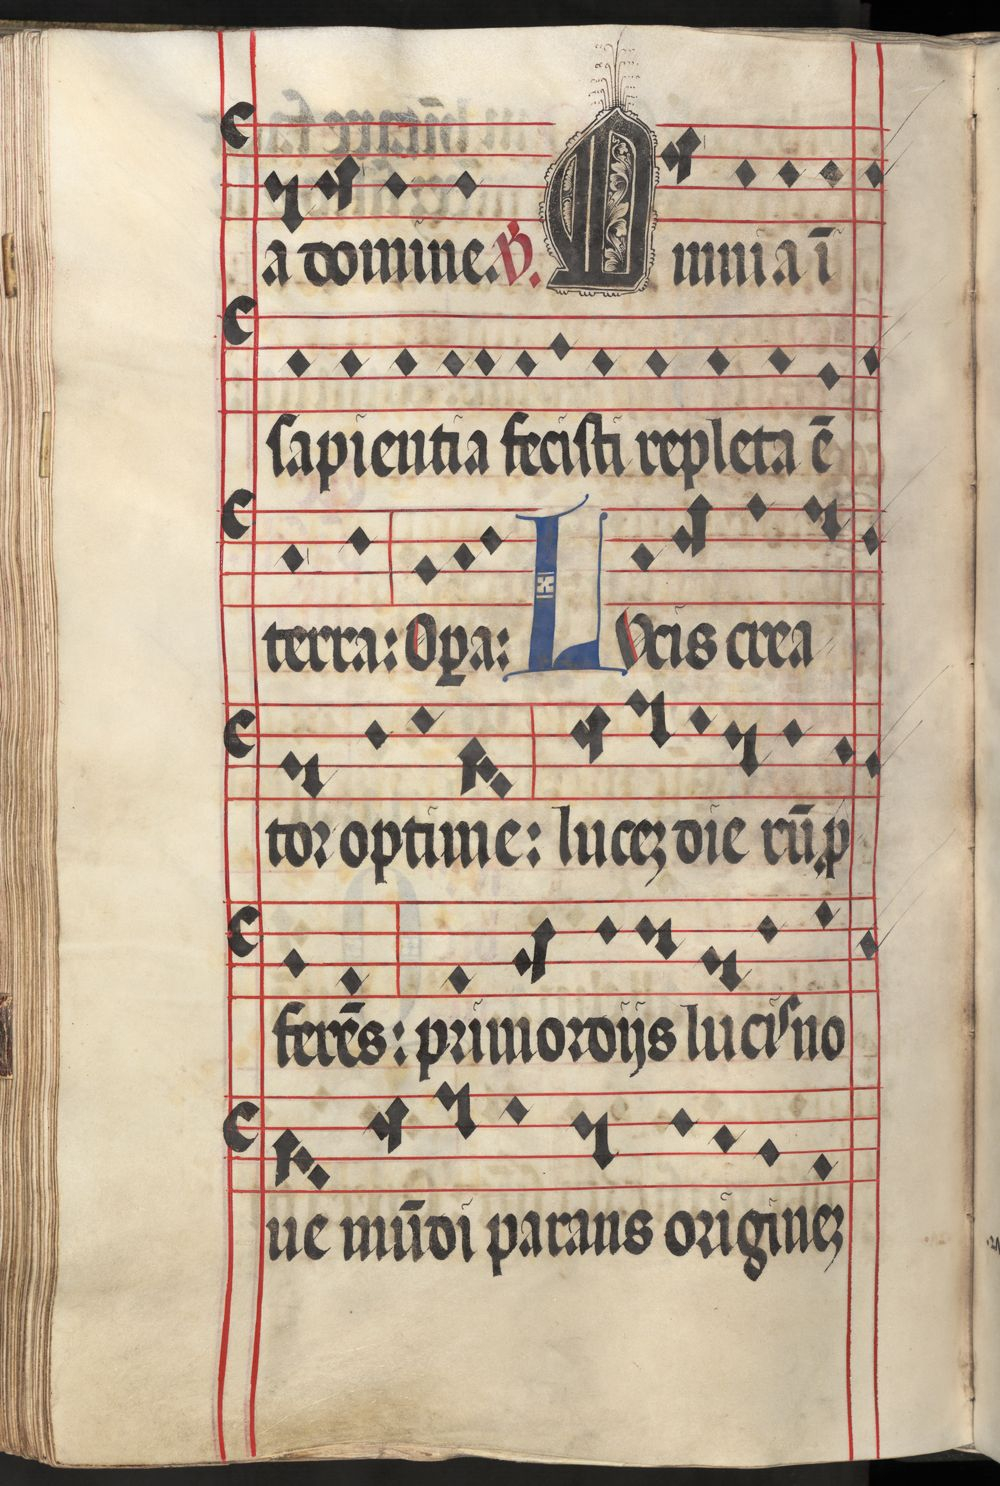 a domine. V. Omnia ī
sapientia fecisti repleta ē
terra: Opa: LVcis crea
tor optime: lucez die rū p
ferēs: primordijs lucis no
ue mūdi parans originez